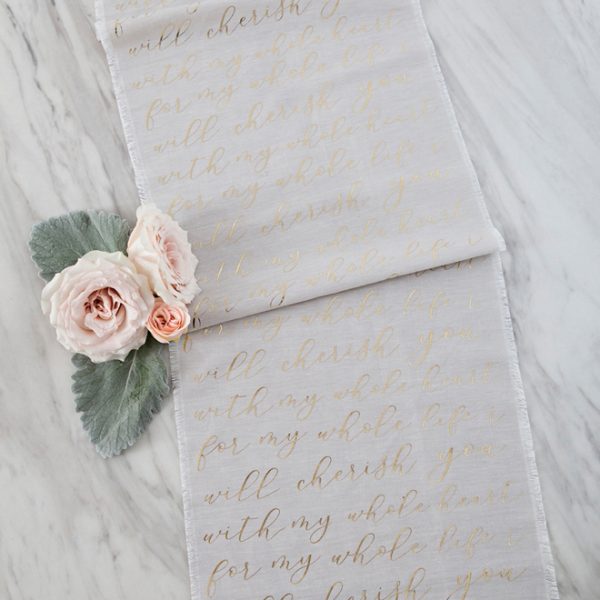 will cherish you
with my whole heart
for my whole life i
will cherish you
with my whole heart
for my whole life i
will cherish you
with my whole heart
for my whole life i
for my whole life i
will cherish you
with my whole heart
for my whole life i
will cherish you
with my whole heart
for my whole life i
will cherish you